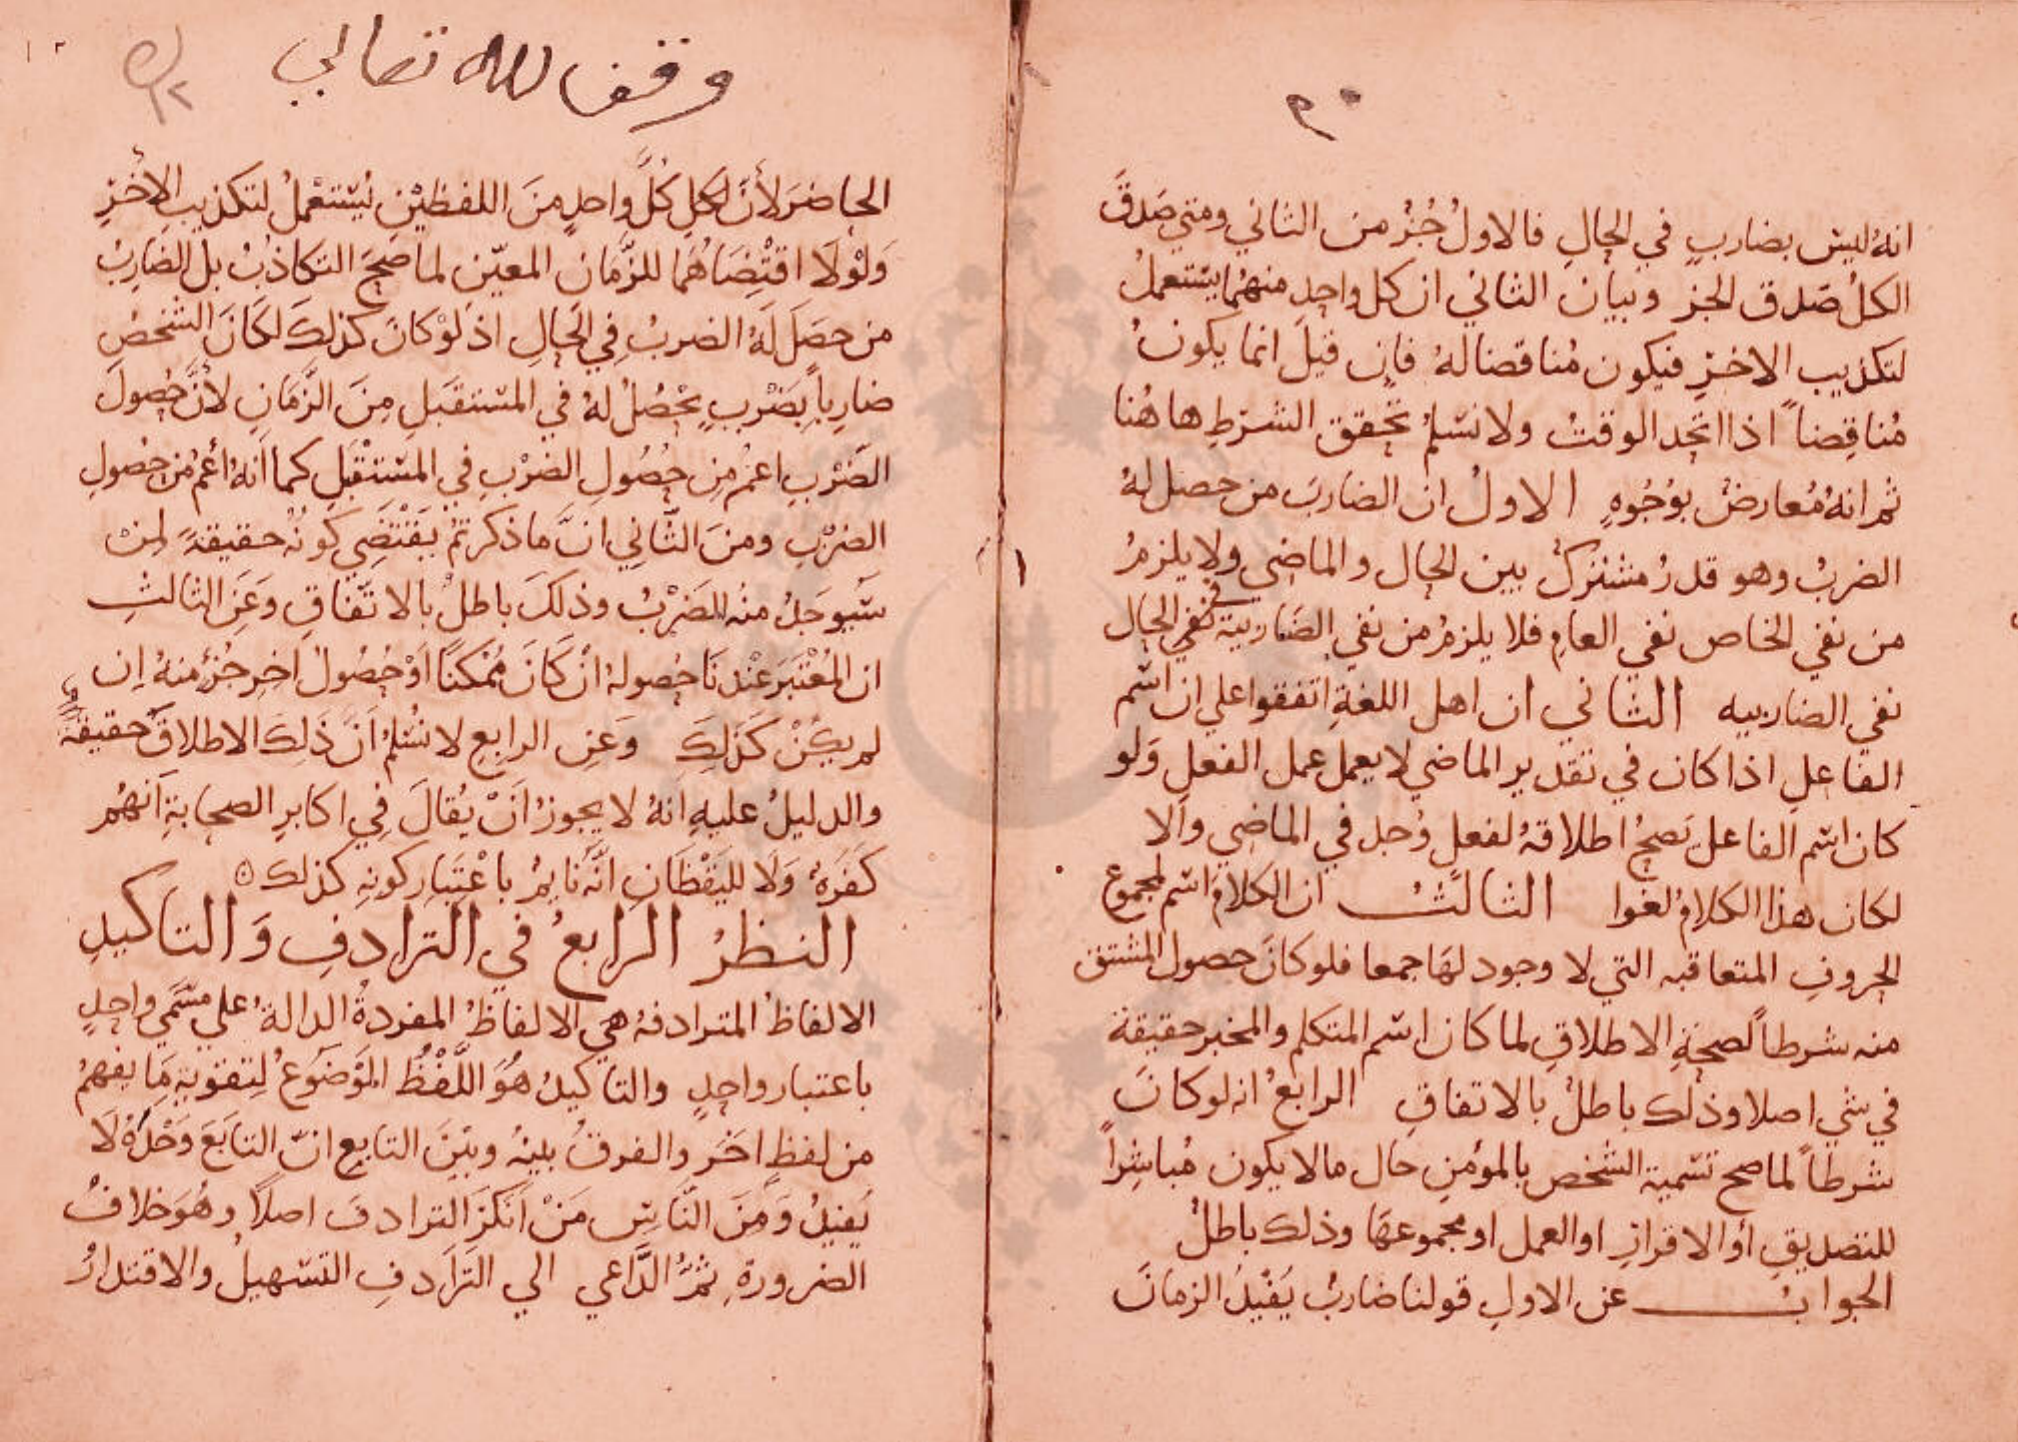 انهُ ليس بضاربٍ في الحالِ فالاولُ جُزءُ من الثاني ومتي صَدقَ
الكلُ صَدق الجز وبيان الثاني ان كل واحدٍ منهُما يستعملُ
لتكذيب الاخرِ فيكون مُناقضا لهُ فان قيلَ انما يكونُ
مُناقِضاً اذا اتحد الوقتُ ولا نسلمُ تحقق الشرطِ هاهُنا
ثم انهُ مُعارضٌ بوُجُوهٍ الاولُ ان الضاربَ من حصل لهُ
الضربُ وهو قدرٌ مشتركٌ بين الحال والماضي ولا يلزمُ
من نفي الخاص نفي العامِ فلا يلزمُ من نفي الضاربية في الحال
نفي الضاربيه الثاني ان اهل اللغةِ اتفقوا علي ان اسم
الفاعلِ اذا كان في تقدير الماضي لا يعمل عمل الفعلِ وَلو
كان اسم الفاعل يَصحُ اطلاقهُ لفعلٍ وُجد في الماضي والا
لكان هذا الكلامُ لغوا الثالثُ ان الكلامَ اسم لمجموع
الحروفِ المتعاقبه التي لا وجود لهَا جمعا فلو كانَ حصول المشتق
منه شرطاً لصحةِ الاطلاقِ لما كان اسم المتكلم والمخبر حقيقة
في شي اصلا وذلك باطلٌ بالاتفاقِ الرابعُ انه لو كانَ
شرطاً لما صح تسمية الشخص بالمؤمنِ حال مالا يكون مُباشِراً
للتصديقِ أو الاقرارِ او العمل او مجموعهَا وذلك باطلٌ
الجوابُ عن الاولِ قولنا ضاربٌ يُفيْدُ الزمانَ
وقف لله تعالى
الحاضرَ لأنَّ لكلِ كُلَّ واحدٍ منَ اللفظيْنِ يُستعْملُ لتكذيبِ الاخرِ
وَلوْلَا اقتْضَاهُما للزَّمان المعيّن لما صَحَ التكاذُبُ بل الضَاربُ
من حصَلَ لَهُ الضربُ فِي الحَالِ اذ لوْ كانَ كذلكَ لكَانَ الشخصُ
ضارباً بِضَرْبٍ يَحْصُلُ لهُ في المسْتقبَلِ مِنَ الزَّمَانِ لأنَّ حُصولَ
الضَرْبِ اعمُ مِن حُصُولِ الضرْبِ في المسْتقْبَلِ كما أنهُ أعمُ مِن حصُولِ
الضرْبِ ومنَ الثَّانِي انَّ ما ذكرتمْ يَقْتَضِي كونُهُ حقيقةً لمنْ
سَيُوجَدُ منهُ الضَرْبُ وذلكَ باطلٌ بالاتّفاقِ وعَنِ الثالثِ
ان المُعْتبَرَ عنْدنَا حُصولهُ انْ كَانَ مُمْكنًا اَوْ حُصُولُ اخِرِ جُزءٍ منهُ اِن
لم يكُنْ كَذلِكَ وَعَنِ الرابعِ لا نسُلمُ اَنَّ ذَلِكَ الاطلاقَ حقيقةً
والدليلُ عليهِ انهُ لا يجوزُ اَنْ يُقالَ فِي اكابرِ الصحابةِ اَنهُم
كَفَرَةٌ وَلَا لليَقْظَانِ انَّهُ نَايمٌ باعْتِبَارِ كونِهِ كذلك
النظرُ الرابعُ في الترادفِ وَالتاكيدِ
الالفاظُ المترادفهُ هيَ الالفاظُ المفردةُ الدالةُ علي مسَمَّي واحدٍ
باعتبار واحدٍ والتاكيدُ هُوَ اللَّفْظُ الموْضوْعُ لِتقويةِ مَا يفهمُ
من لفظٍ اخَر والفرقُ بينهُ وبيْنَ التابعِ انّ التابَعَ وَحْدَهُ لَا
يُفيدُ وَمِنَ النَّاسِ مَنْ اَنكَرَ الترادفَ اصلاً وهُوَ خلافُ
الضرورةِ ثمَّ الدَّاعي الي التَرَادفِ التسْهيلُ والاقتدارُ